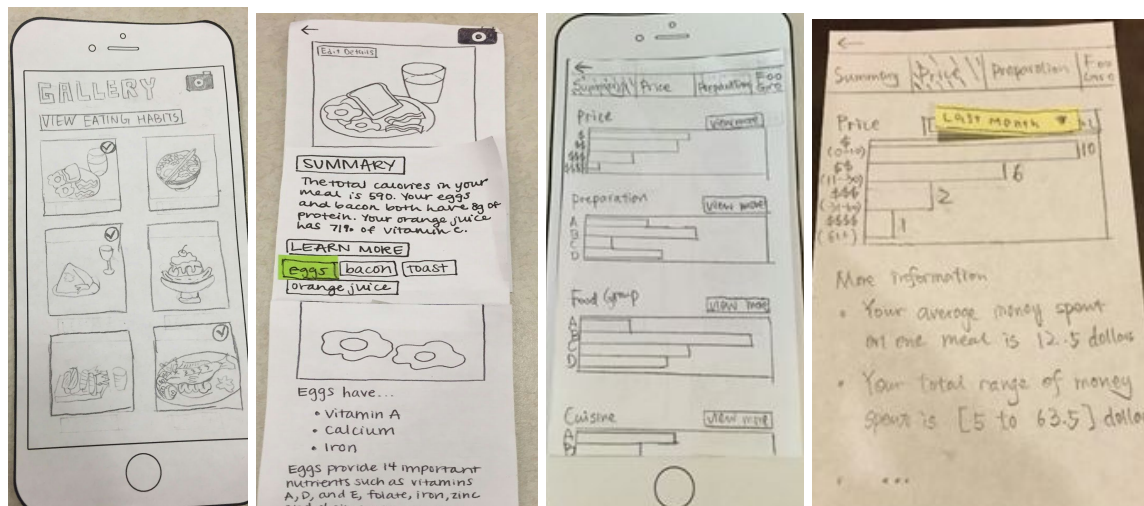 GALLERY
VIEW EATING HABITS
←
Edit Details
SUMMARY
The total calories in your
meal is 590. Your eggs
and bacon both have 8g of
protein. Your orange juice
has 71% of vitamin C.
LEARN MORE
eggs bacon toast
orange juice
Eggs have...
• Vitamin A
• Calcium
• Iron
Eggs provide 14 important
nutrients such as vitamins
A, D, and E, folate, iron, zinc
←
Summary Price Preparation
Price view more
$
$$
$$$
Preparation view more
A
B
C
D
Food Group view more
A
B
C
D
Cuisine view more
A
B
←
Summary Price Preparation
Price Last Month ▼
$
(0-10) 10
$$ 6
$$$ 2
$$$$ 1
More information
• Your average money spent
on one meal is 12.5 dollars
• Your total range of money
spent is [5 to 63.5] dollar
• ...